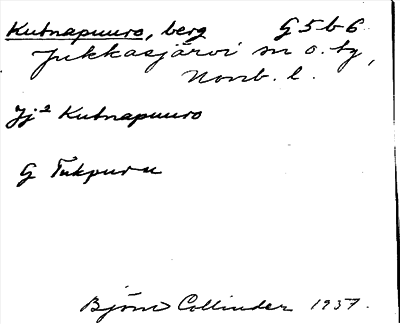 Kutnapuuro, berg G5b6
Jukkasjärvi sn o. tg,
Norrb. l.
Jj² Kutnapuuro
G Tukpuru
Björn Collinder 1937.